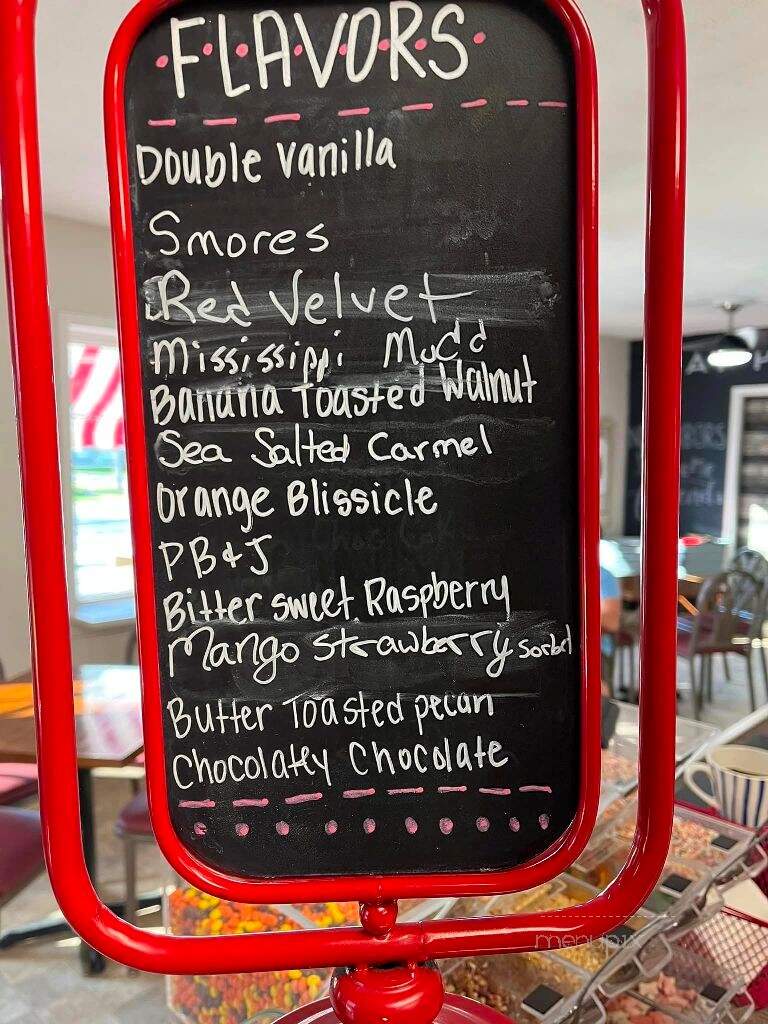 FLAVORS
Double Vanilla
Smores
Red Velvet
Mississippi Mudd
Banana Toasted Walnut
Sea Salted Carmel
Orange Blissicle
PB&J
Bittersweet Raspberry
Mango Strawberry Sorbet
Butter Toasted pecan
Chocolatey Chocolate
menupix